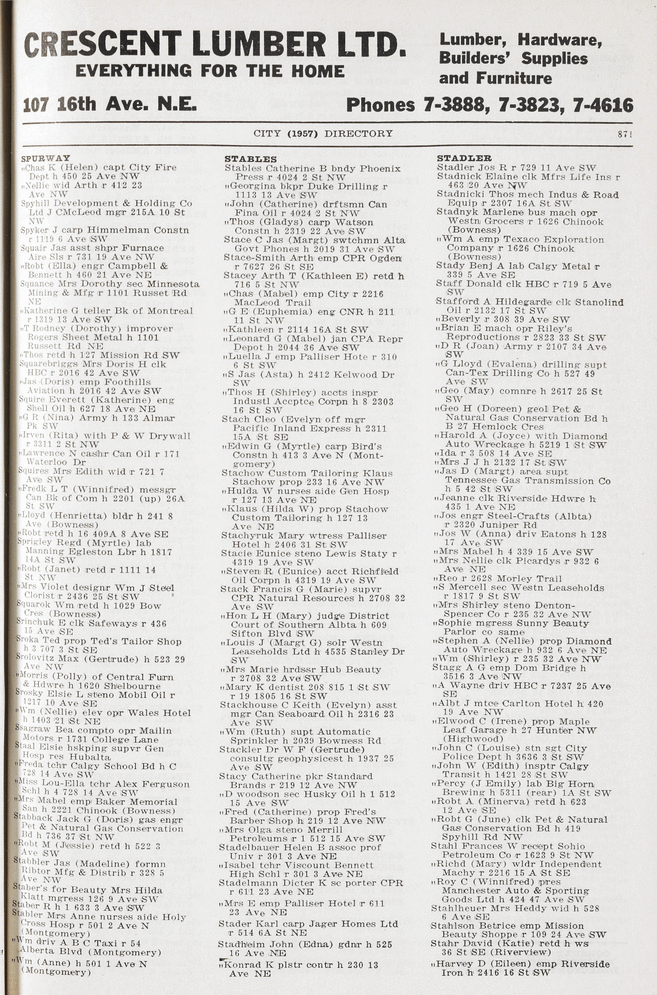 CRESCENT LUMBER LTD.
EVERYTHING FOR THE HOME
Lumber, Hardware,
Builders' Supplies
and Furniture
107 16th Ave. N.E.
Phones 7-3888, 7-3823, 7-4616
CITY (1957) DIRECTORY
871
SPURWAY
"Chas K (Helen) capt City Fire
Dept h 450 25 Ave NW
"Nellie wid Arth r 412 23
Ave NW
Spyhill Development & Holding Co
Ltd J CMcLeod mgr 215A 10 St
NW
Spyker J carp Himmelman Constn
r 1119 6 Ave SW
Squair Jas asst shpr Furnace
Aire Sls r 731 19 Ave NW
"Robt (Ella) engr Campbell &
Bennett h 460 21 Ave NE
Squance Mrs Dorothy sec Minnesota
Mining & Mfg r 1101 Russet Rd
NE
"Katherine G teller Bk of Montreal
r 1319 13 Ave SW
"T Rodney (Dorothy) improver
Rogers Sheet Metal h 1101
Russett Rd NE
"Thos retd h 127 Mission Rd SW
Squarebriggs Mrs Doris H clk
HBC r 2016 42 Ave SW
"Jas (Doris) emp Foothills
Aviation h 2016 42 Ave SW
Squire Everett (Katherine) eng
Shell Oil h 627 18 Ave NE
"G R (Nina) Army h 133 Almar
Pk SW
"Irven (Rita) with P & W Drywall
r 3311 2 St NW
"Lawrence N cashr Can Oil r 171
Waterloo Dr
Squires Mrs Edith wid r 721 7
Ave SW
"Fredk L T (Winnifred) messgr
Can Bk of Com h 2201 (up) 26A
St SW
"Lloyd (Henrietta) bldr h 241 8
Ave (Bowness)
"Robt retd h 16 409A 8 Ave SE
Sprigley Regd (Myrtle) lab
Manning Egleston Lbr h 1817
14A St SW
"Robt (Janet) retd r 1111 14
St NW
"Mrs Violet designr Wm J Steel
Clorist r 2436 25 St SW
Squarok Wm retd h 1029 Bow
Cres (Bowness)
Srinchuk E clk Safeways r 436
15 Ave SE
Sroka Ted prop Ted's Tailor Shop
h 3 707 3 St SE
Srolovitz Max (Gertrude) h 523 29
Ave NW
"Morris (Polly) of Central Furn
& Hdwre h 1620 Shelbourne
Srosky Elsie L steno Mobil Oil r
1217 10 Ave SE
"Wm (Nellie) elev opr Wales Hotel
h 1403 21 St NE
Ssagraw Bea compto opr Mailin
Motors r 1731 College Lane
Staal Elsie hskping supvr Gen
Hosp res Hubalta
"Freda tchr Calgy School Bd h C
728 14 Ave SW
"Miss Lou-Ella tchr Alex Ferguson
Schl h 4 728 14 Ave SW
"Mrs Mabel emp Baker Memorial
San h 2221 Chinook (Bowness)
Stabback Jack G (Doris) gas engr
Pet & Natural Gas Conservation
Bd h 736 37 St NW
"Robt M (Jessie) retd h 522 3
Ave SW
Stabbler Jas (Madeline) formn
Ribtor Mfg & Distrib r 328 5
Ave NW
Staber's for Beauty Mrs Hilda
Klatt mgress 126 9 Ave SW
Staber R H 1 633 3 Ave SW
Stabler Mrs Anne nurses aide Holy
Cross Hosp r 501 2 Ave N
(Montgomery)
"Wm driv A B C Taxi r 54
Alberta Blvd (Montgomery)
"Wm (Anne) h 501 1 Ave N
(Montgomery)
STABLES
Stables Catherine B bndy Phoenix
Press r 4024 2 St NW
"Georgina bkpr Duke Drilling r
1113 13 Ave SW
"John (Catherine) drftsmn Can
Fina Oil r 4024 2 St NW
"Thos (Gladys) carp Watson
Constn h 2319 22 Ave SW
Stace C Jas (Margt) swtchmn Alta
Govt Phones h 2019 31 Ave SW
Stace-Smith Arth emp CPR Ogden
r 7627 26 St SE
Stacey Arth T (Kathleen E) retd h
716 5 St NW
"Chas (Mabel) emp City r 2216
MacLeod Trail
"G E (Euphemia) eng CNR h 211
11 St NW
"Kathleen r 2114 16A St SW
"Leonard G (Mabel) jan CPA Repr
Depot h 2044 36 Ave SW
"Luella J emp Palliser Hote r 310
6 St SW
"S Jas (Asta) h 2412 Kelwood Dr
SW
"Thos H (Shirley) accts inspr
Industl Accptce Corpn h 8 2303
16 St SW
Stach Cleo (Evelyn off mgr
Pacific Inland Express h 2311
15A St SE
"Edwin G (Myrtle) carp Bird's
Constn h 413 3 Ave N (Mont-
gomery)
Stachow Custom Tailoring Klaus
Stachow prop 233 16 Ave NW
"Hulda W nurses aide Gen Hosp
r 127 13 Ave NE
"Klaus (Hilda W) prop Stachow
Custom Tailoring h 127 13
Ave NE
Stachyruk Mary wtress Palliser
Hotel h 2406 31 St SW
Stacie Eunice steno Lewis Staty r
4319 19 Ave SW
"Steven R (Eunice) acct Richfield
Oil Corpn h 4319 19 Ave SW
Stack Francis G (Marie) supvr
CPR Natural Resources h 2708 32
Ave SW
"Hon L H (Mary) judge District
Court of Southern Albta h 609
Sifton Blvd SW
"Louis J (Margt G) solr Westn
Leaseholds Ltd h 4535 Stanley Dr
SW
"Mrs Marie hrdssr Hub Beauty
r 2708 32 Ave SW
"Mary K dentist 208 815 1 St SW
r 19 1805 16 St SW
Stackhouse C Keith (Evelyn) asst
mgr Can Seaboard Oil h 2316 23
Ave SW
"Wm (Ruth) supt Automatic
Sprinkler h 2039 Bowness Rd
Stackler Dr W F (Gertrude)
consultg geophysicest h 1937 25
Ave SW
Stacy Catherine pkr Standard
Brands r 219 12 Ave NW
"D woodson sec Husky Oil h 1 512
15 Ave SW
"Fred (Catherine) prop Fred's
Barber Shop h 219 12 Ave NW
"Mrs Olga steno Merrill
Petroleums r 1 512 15 Ave SW
Stadelbauer Helen B assoc prof
Univ r 301 3 Ave NE
"Isabel tchr Viscount Bennett
High Schl r 301 3 Ave NE
Stadelmann Dieter K sc porter CPR
r 611 23 Ave NE
"Mrs E emp Palliser Hotel r 611
23 Ave NE
Stader Karl carp Jager Homes Ltd
r 514 6A St NE
Stadheim John (Edna) gdnr h 525
16 Ave NE
"Konrad K plstr contr h 230 13
Ave NE
STADLER
Stadler Jos R r 729 11 Ave SW
Stadnick Elaine clk Mfrs Life Ins r
463 20 Ave NW
Stadnicki Thos mech Indus & Road
Equip r 2307 16A St SW
Stadnyk Marlene bus mach opr
Westn Grocers r 1626 Chinook
(Bowness)
"Wm A emp Texaco Exploration
Company r 1626 Chinook
(Bowness)
Stady Benj A lab Calgy Metal r
339 5 Ave SE
Staff Donald clk HBC r 719 5 Ave
SW
Stafford A Hildegarde clk Stanolind
Oil r 2132 17 St SW
"Beverly r 308 39 Ave SW
"Brian E mach opr Riley's
Reproductions r 2823 33 St SW
"D R (Joan) Army r 2107 34 Ave
SW
"G Lloyd (Evalena) drilling supt
Can-Tex Drilling Co h 527 49
Ave SW
"Geo (May) comnre h 2617 25 St
SW
"Geo H (Doreen) geol Pet &
Natural Gas Conservation Bd h
B 27 Hemlock Cres
"Harold A (Joyce) with Diamond
Auto Wreckage h 5219 1 St SW
"Ida r 3 508 14 Ave SE
"Mrs J J h 2132 17 St SW
"Jas D (Margt) area supt
Tennessee Gas Transmission Co
h 5 42 St SW
"Jeanne clk Riverside Hdwre h
435 1 Ave NE
"Jos engr Steel-Crafts (Albta)
r 2320 Juniper Rd
"Jos W (Anna) driv Eatons h 128
17 Ave SW
"Mrs Mabel h 4 339 15 Ave SW
"Mrs Nellie clk Picardys r 932 6
Ave NE
"Reo r 2628 Morley Trail
"S Mercell sec Westn Leaseholds
r 1817 9 St SW
"Mrs Shirley steno Denton-
Spencer Co r 235 32 Ave NW
"Sophie mgress Sunny Beauty
Parlor co same
"Stephen A (Nellie) prop Diamond
Auto Wreckage h 932 6 Ave NE
"Wm (Shirley) r 235 32 Ave NW
Stagg A G emp Dom Bridge h
3516 3 Ave NW
"A Wayne driv HBC r 7237 25 Ave
SE
"Albt J mtce Carlton Hotel h 420
19 Ave NW
"Elwood C (Irene) prop Maple
Leaf Garage h 27 Hunter NW
(Highwood)
"John C (Louise) stn sgt City
Police Dept h 3636 3 St SW
"John W (Edith) insptr Calgy
Transit h 1421 28 St SW
"Percy (J Emily) lab Big Horn
Brewing h 5311 (rear) 1A St SW
"Robt A (Minerva) retd h 623
12 Ave SE
"Robt G (June) clk Pet & Natural
Gas Conservation Bd h 419
Spyhill Rd NW
Stahl Frances W recept Sohio
Petroleum Co r 1623 9 St NW
"Richd (Mary) wldr Independent
Machy r 2216 15 A St SE
"Roy C (Winnifred) pres
Manchester Auto & Sporting
Goods Ltd h 424 47 Ave SW
Stahlheuer Mrs Heddy wid h 528
6 Ave SE
Stahlson Betrice emp Mission
Beauty Shoppe r 109 24 Ave SW
Stahr David (Katie) retd h ws
36 St SE (Riverview)
"Harvey D (Eileen) emp Riverside
Iron h 2416 16 St SW